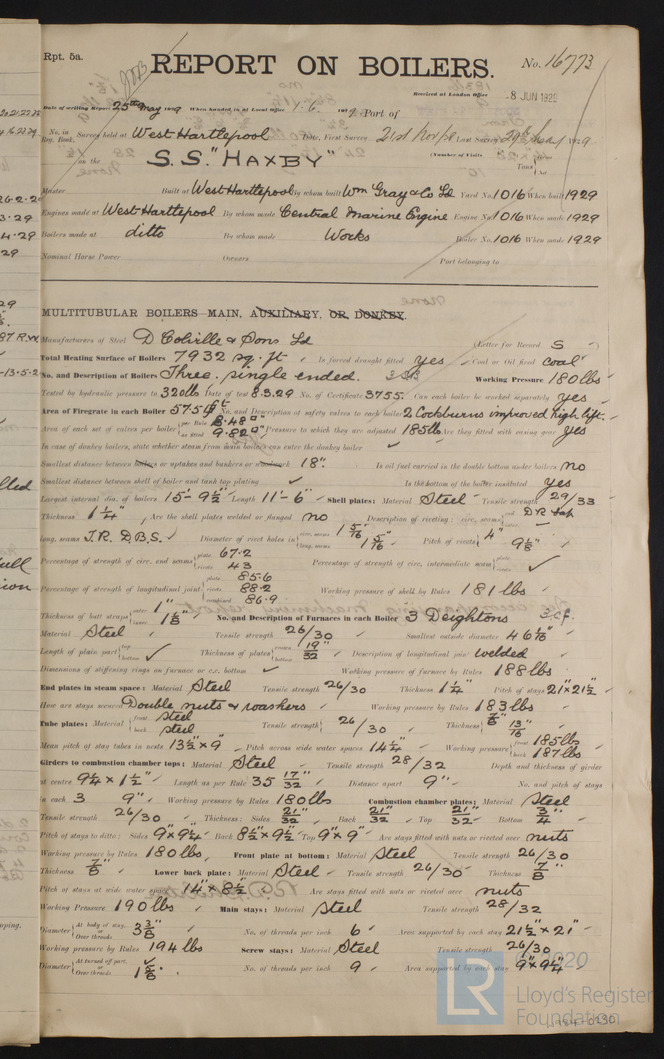 Rpt. 5a.
REPORT ON BOILERS.
No. 16773
Received at London Office 8 JUN 1929
Date of writing Report 25th May 1929 When handed in at Local Office 1-6- 1929 Port of
No. in Reg. Book. Survey held at West Hartlepool Date, First Survey 21st Nov/28 Last Survey 29th May 1929
on the S.S. "HAXBY" (Number of Visits Tons
Master Built at West Hartlepool By whom built Wm Gray & Co Ld Yard No. 1016 When built 1929
Engines made at West Hartlepool By whom made Central Marine Engine Engine No. 1016 When made 1929
Boilers made at ditto By whom made Works Boiler No. 1016 When made 1929
Nominal Horse Power Owners Port belonging to
MULTITUBULAR BOILERS—MAIN, AUXILIARY, OR DONKEY.
Manufacturers of Steel D Colville & Sons Ld (Letter for Record S)
Total Heating Surface of Boilers 7932 sq. ft. Is forced draught fitted yes Coal or Oil fired coal
No. and Description of Boilers Three. single ended. 3 SB Working Pressure 180 lbs
Tested by hydraulic pressure to 320 lbs Date of test 8.3.29 No. of Certificate 3755 Can each boiler be worked separately yes
Area of Firegrate in each Boiler 57.5 No. and Description of safety valves to each boiler 2 Cockburns improved high lift.
Area of each set of valves per boiler per Rule 8.48 as fitted 9.82 Pressure to which they are adjusted 185 lb Are they fitted with easing gear yes
In case of donkey boilers, state whether steam from main boilers can enter the donkey boiler ✓
Smallest distance between boilers or uptakes and bunkers or woodwork 18". Is oil fuel carried in the double bottom under boilers no
Smallest distance between shell of boiler and tank top plating ✓ Is the bottom of the boiler insulated yes
Largest internal dia. of boilers 15'- 9½" Length 11'- 6" Shell plates: Material Steel Tensile strength 29/33
Thickness 1¼" Are the shell plates welded or flanged no Description of riveting: circ. seams end DR Lap
long. seams T.R. D.B.S. Diameter of rivet holes in circ. seams 1 5/16 long. seams 1 5/16 Pitch of rivets 4" 9⅛"
Percentage of strength of circ. end seams plate 67.2 rivets 43 Percentage of strength of circ. intermediate seam plate rivets ✓
Percentage of strength of longitudinal joint plate 85.6 rivets 88.2 combined 86.9 Working pressure of shell by Rules 181 lbs
Thickness of butt straps outer 1" inner 1⅛" No. and Description of Furnaces in each Boiler 3 Deightons 3 cf.
Material Steel Tensile strength 26/30 Smallest outside diameter 46⅛"
Length of plain part top bottom ✓ Thickness of plates crown bottom 19/32 Description of longitudinal joint welded
Dimensions of stiffening rings on furnace or c.c. bottom ✓ Working pressure of furnace by Rules 188 lbs
End plates in steam space: Material Steel Tensile strength 26/30 Thickness 1¼" Pitch of stays 21"x21½"
How are stays secured Double nuts & washers Working pressure by Rules 183 lbs
Tube plates: Material front steel back steel Tensile strength 26/30 Thickness ⅞" 13/16"
Mean pitch of stay tubes in nests 13½"x9" Pitch across wide water spaces 14¼" Working pressure front 185 lbs back 187 lbs
Girders to combustion chamber tops: Material Steel Tensile strength 28/32 Depth and thickness of girder
at centre 9¼ x 1½" Length as per Rule 35 17/32 Distance apart 9" No. and pitch of stays
in each 3 9" Working pressure by Rules 180 lbs Combustion chamber plates: Material Steel
Tensile strength 26/30 Thickness: Sides 21/32 Back 21/32 Top 21/32 Bottom 3/4
Pitch of stays to ditto: Sides 9"x9¼" Back 8½"x9½" Top 9"x9" Are stays fitted with nuts or riveted over nuts
Working pressure by Rules 180 lbs Front plate at bottom: Material Steel Tensile strength 26/30
Thickness ⅞" Lower back plate: Material Steel Tensile strength 26/30 Thickness ⅞"
Pitch of stays at wide water space 14"x8½" Are stays fitted with nuts or riveted over nuts
Working Pressure 190 lbs Main stays: Material Steel Tensile strength 28/32
Diameter At body of stay, or Over threads 3⅜" No. of threads per inch 6 Area supported by each stay 21½"x21"
Working pressure by Rules 194 lbs Screw stays: Material Steel Tensile strength 26/30
Diameter At turned off part, or Over threads 1⅝" No. of threads per inch 9 Area supported by each stay 9"x9¼"
LR
© 2020
Lloyd's Register
Foundation